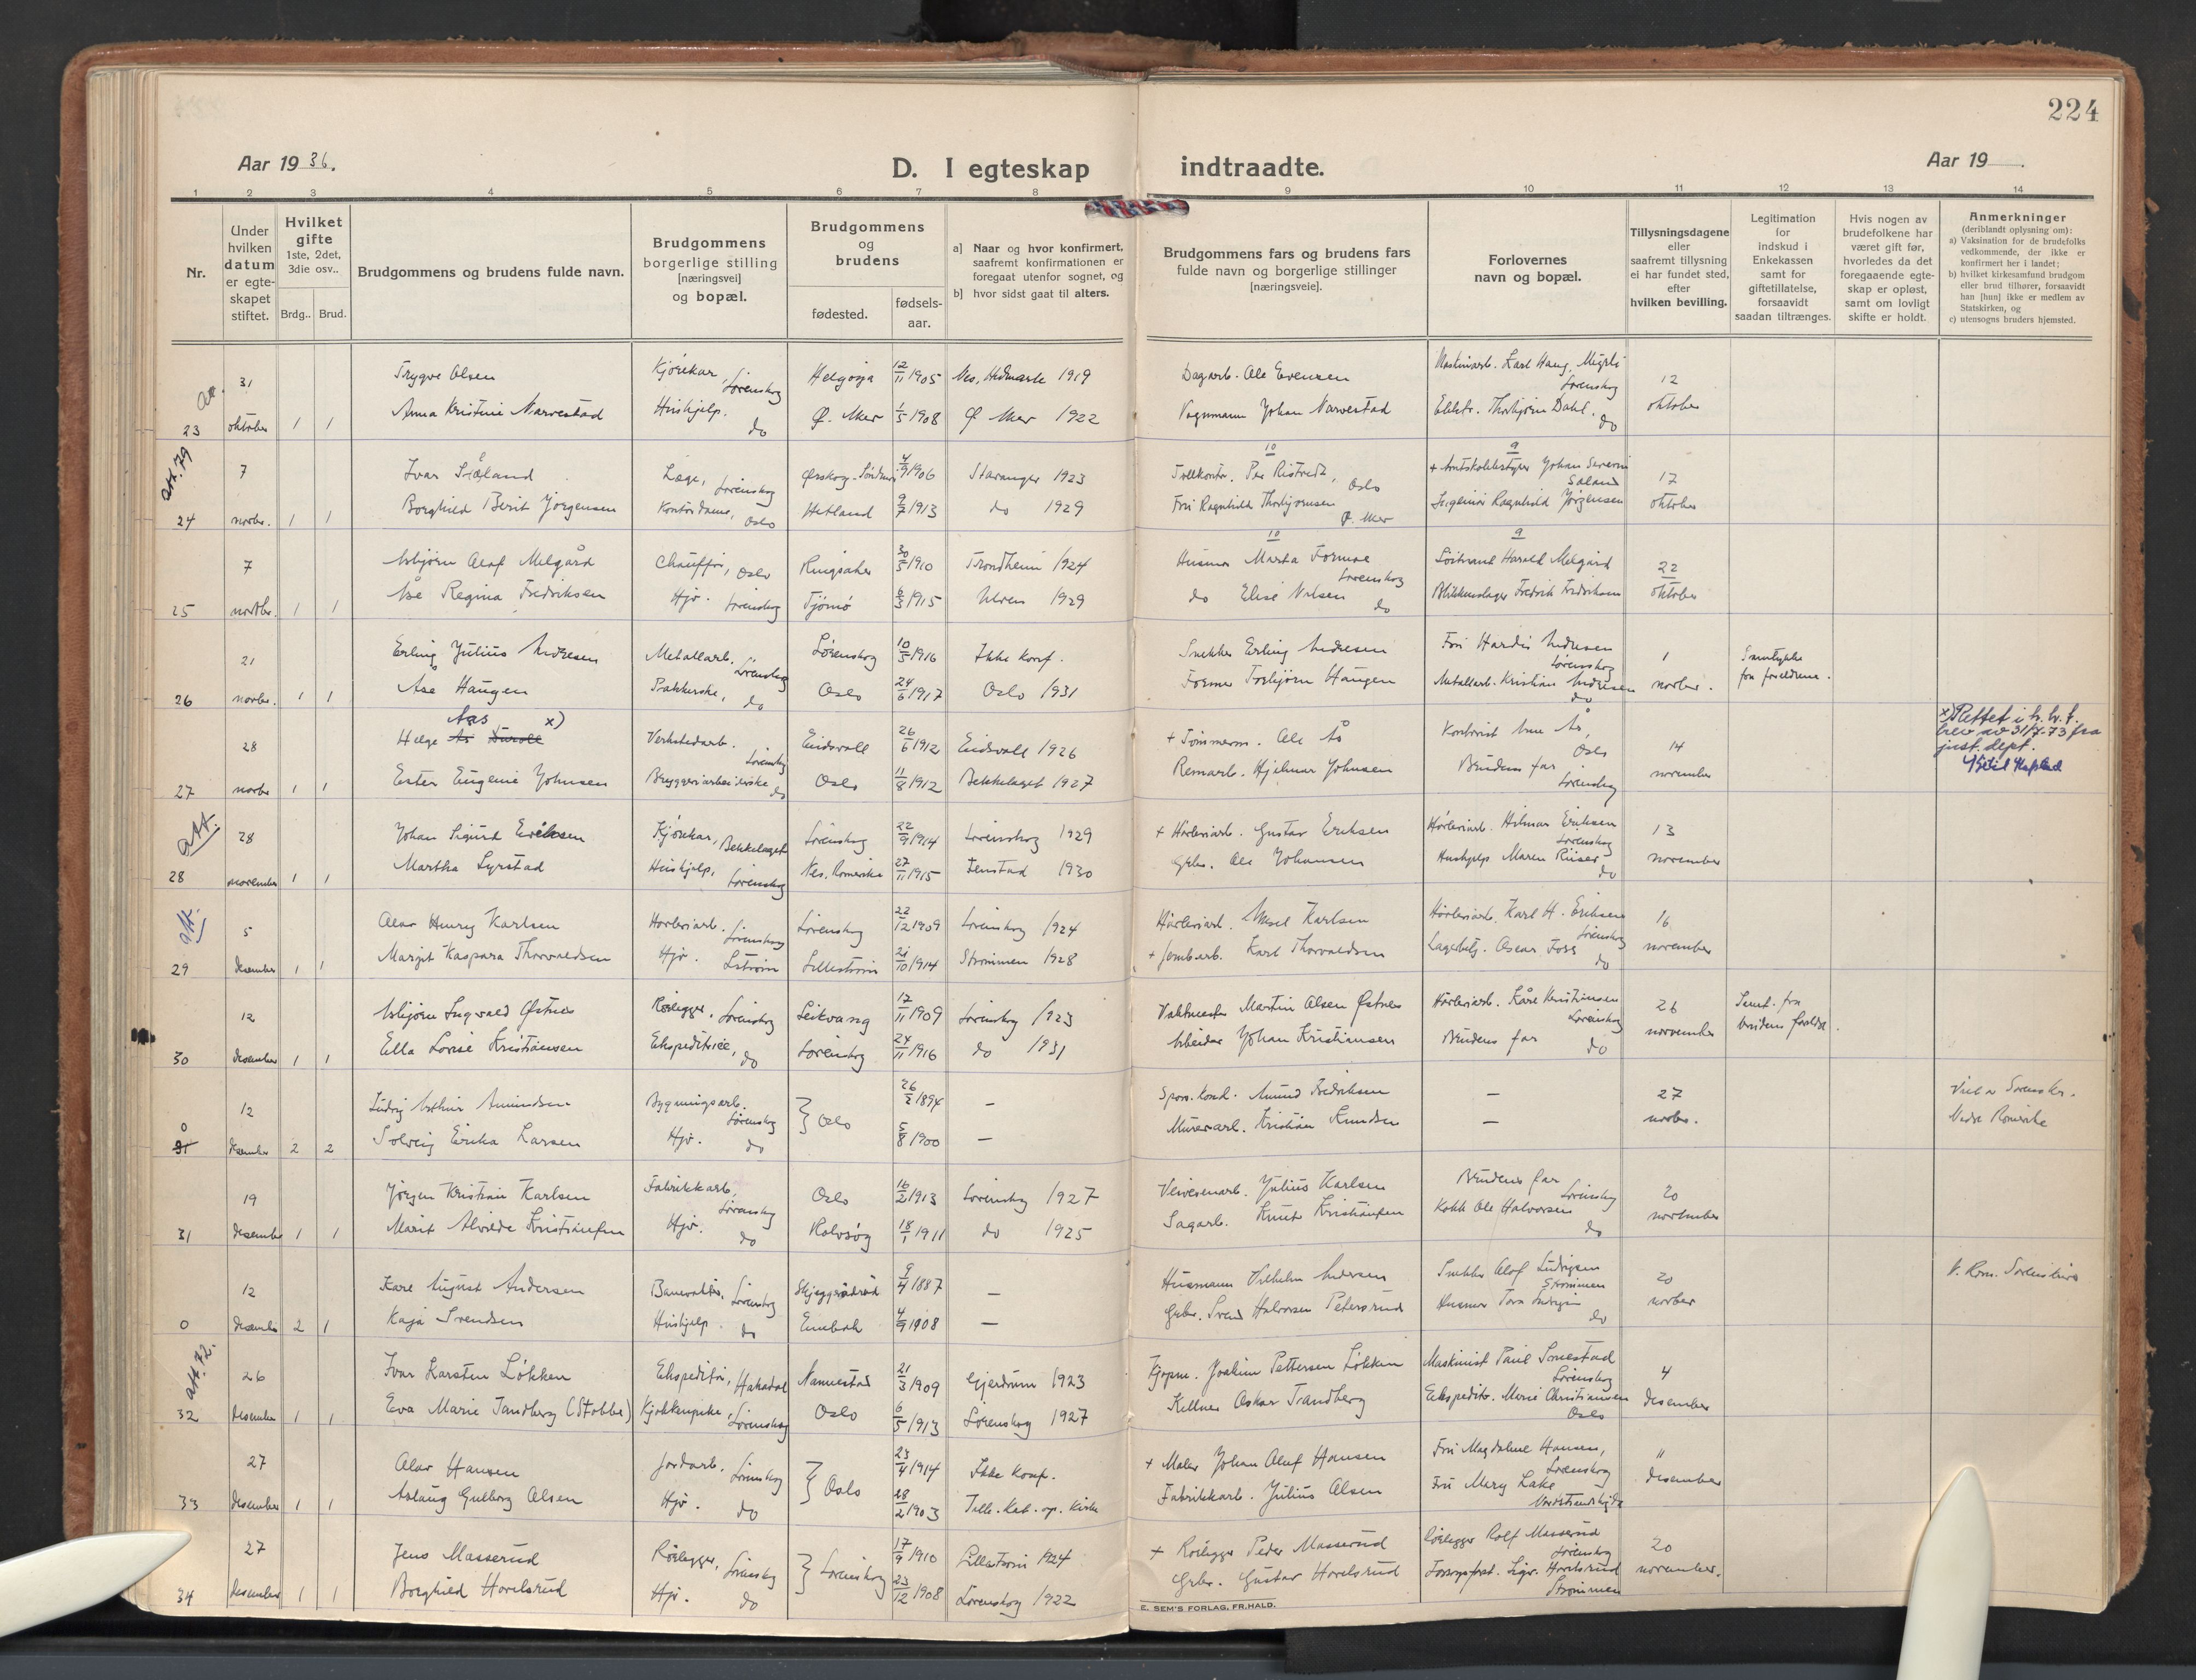 224
Aar 1936.
D. I egteskap indtraadte.
Aar 19
1 2 3 4 5 6 7 8 9 10 11 12 13 14
Nr.
Under hvilken datum er egte-skapet stiftet.
Hvilket gifte 1ste, 2det, 3die osv..
Brdg.. Brud.
Brudgommens og brudens fulde navn.
Brudgommens borgerlige stilling [næringsvei] og bopæl.
Brudgommens og brudens
fødested.
fødsels-aar.
a] Naar og hvor konfirmert, saafremt konfirmationen er foregaat utenfor sognet, og
b] hvor sidst gaat til alters.
Brudgommens fars og brudens fars fulde navn og borgerlige stillinger [næringsveie].
Forlovernes navn og bopæl.
Tillysningsdagene eller saafremt tillysning ei har fundet sted, efter hvilken bevilling.
Legitimation for indskud i Enkekassen samt for giftetillatelse, forsaavidt saadan tiltrænges.
Hvis nogen av brudefolkene har været gift før, hvorledes da det foregaaende egte-skap er opløst, samt om lovligt skifte er holdt.
Anmerkninger (deriblandt oplysning om):
a) Vaksination for de brudefolks vedkommende, der ikke er konfirmert her i landet;
b) hvilket kirkesamfund brudgom eller brud tilhører, forsaavidt han [hun] ikke er medlem av Statskirken, og
c) utensogns bruders hjemsted.
31 Trygve Olsen Kjørekar, Lørenskog Helgøya 12/11 1905 Nes, Hedmark 1919 Dagarb. Ole Evensen Maskinarb. Karl Haug, Lørenskog 12
23 oktober 1 1 Anna Kristine Narvestad Hushjelp. do Ø. Aker 1/5 1908 Ø Aker 1922 Vognmann Johan Narvestad Elektr. Thorbjørn Dahl. do oktober
att. 79
7 Ivar Såland Læge, Lørenskog Ørskog. 4/9 1906 Stavanger 1923 10 Oslo 9 + Johan Såland 17
24 novbr. 1 1 Borghild Berit Jørgensen Kontordame, Oslo Hetland 9/7 1913 do 1929 Fru Ragnhild Thorbjørnsen Ø. Aker Ragnhild Jørgensen oktober
7 Asbjørn Olaf Melgård Chauffør, Oslo Ringsaker 30/5 1910 Trondheim 1924 10 Husmor Marta Lørenskog 9 Harald Melgård 22
25 novbr. 1 1 Åse Regina Fredriksen Hjv. Lørenskog Tjømø 6/3 1915 Ulven 1929 do Elise Nilsen do Blikkenslager Fredrik Fredriksen oktober
21 Erling Julius Andresen Metallarb. Lørenskog Lørenskog 10/5 1916 Ikke konf. Snekker Erling Andresen Fru Hardis Andresen Lørenskog 1 Samtykke
26 novbr. 1 1 Åse Haugen Pakkerske, do Oslo 24/6 1917 Oslo 1931 Former Torbjørn Haugen Metallarb. Kristian Andresen do novber. fra foreldrene.
Aas x)
28 Helge Ås Verkstedarb. Lørenskog Eidsvoll 26/6 1912 Eidsvoll 1926 + Tømmerm. Ole Ås Kontorist Ås, Oslo 14
27 novbr 1 1 Ester Eugenie Johnsen Bryggeriarbeiderske do Oslo 11/8 1912 Bekkelaget 1927 Hjelmar Johnsen Brudens far Lørenskog november
x) Rettet i h. h. t. brev av 31/7-73 fra just. dept.
att.
28 Johan Sigurd Eriksen Kjørekar, Bekkelaget Lørenskog 22/9 1914 Lørenskog 1929 + Høvleriarb. Gustav Eriksen Høvleriarb. Hilmar Eriksen Lørenskog 13
28 november 1 1 Martha Lyrstad Hushjelp, Lørenskog Nes. Romerike 27/11 1915 Fenstad 1930 Grbr. Ole Johansen Hushjelp Maren Riiser do november
att.
5 Olav Henry Karlsen Høvleriarb. Lørenskog Lørenskog 22/12 1909 Lørenskog 1924 Høvleriarb. Aksel Karlsen Høvleriarb. Karl H. Eriksen Lørenskog 16
29 desember 1 1 Margit Kaspara Thorvaldsen Hjv. Lstrøm Lillestrøm 21/10 1914 Strømmen 1928 + Jernbarb. Karl Thorvaldsen Lagerbetj. Oscar Foss do november
12 Asbjørn Ingvald Østnes Rørlegger, Lørenskog Leikvang 17/11 1909 Lørenskog 1923 Vaktmester Martin Olsen Østnes Høvleriarb. Kåre Kristiansen Lørenskog 26 Samt. fra
30 desember 1 1 Ella Lovise Kristiansen Ekspeditrice, do Lørenskog 24/11 1916 do 1931 Arbeider Johan Kristiansen Brudens far do november brudens foreldre.
12 Ludvig Arthur Amundsen Bygningsarb. Lørenskog Oslo 26/2 1894 – Sporv. kond. Amund Fredriksen – 27
0 31 desember 2 2 Solveig Erika Larsen Hjv. do 5/8 1900 – Murerarb. Kristian Knudsen – novbr. Nedre Romerike
19 Jørgen Kristian Karlsen Fabrikkarb. Lørenskog Oslo 16/2 1913 Lørenskog 1927 Veivesenarb. Julius Karlsen Brudens far Lørenskog 20
31 desember 1 1 Marit Alvilde Kristiansen Hjv. do Rolvsøy 18/1 1911 do 1925 Sagarb. Knut Kristiansen Kokk Ole Halvorsen do november
12 Kare August Andersen Lørenskog 9/4 1887 – Husmann Vilhelm Andersen Snekker Olaf Ludvigsen Strømmen 20
0 desember 2 1 Kaja Svendsen Hushjelp. do Enebak 4/9 1908 – Grbr. Svend Halvorsen Petersrud Husmor do novber
att. 72.
26 Ivar Karsten Løkken Ekspeditør, Hakadal Nannestad 21/3 1909 Gjerdrum 1923 Kjøpm. Joakim Pettersen Løkken Maskinist Paul Lørenskog 4
32 desember 1 1 Eva Marie Tandberg (Stobbe) Kjøkkenpike, Lørenskog Oslo 6/5 1913 Lørenskog 1927 Kellner Oskar Tandberg Ekspeditr. Marie Christiansen Oslo desember
27 Olav Hansen Jordarb. Lørenskog Oslo 23/4 1914 Ikke konf. + Maler Johan Oluf Hansen Fru Magdalene Hansen, Lørenskog "
33 desember 1 1 Aslaug Gulborg Olsen Hjv. do 28/2 1903 Fabrikkarb. Julius Olsen Fru Mary Lake desember
27 Jens Masserud Rørlegger, Lørenskog Lørenskog 17/9 1910 Lillestrøm 1924 + Rørlegger Peder Masserud Rørlegger Rolf Masserud Lørenskog 20
34 desember 1 1 Borghild Hovelsrud Hjv. do 23/12 1908 Lørenskog 1922 Grbr. Gustav Hovelsrud Sigv. Hovelsrud Strømmen november.
E. SEM'S FORLAG, FR.HALD.